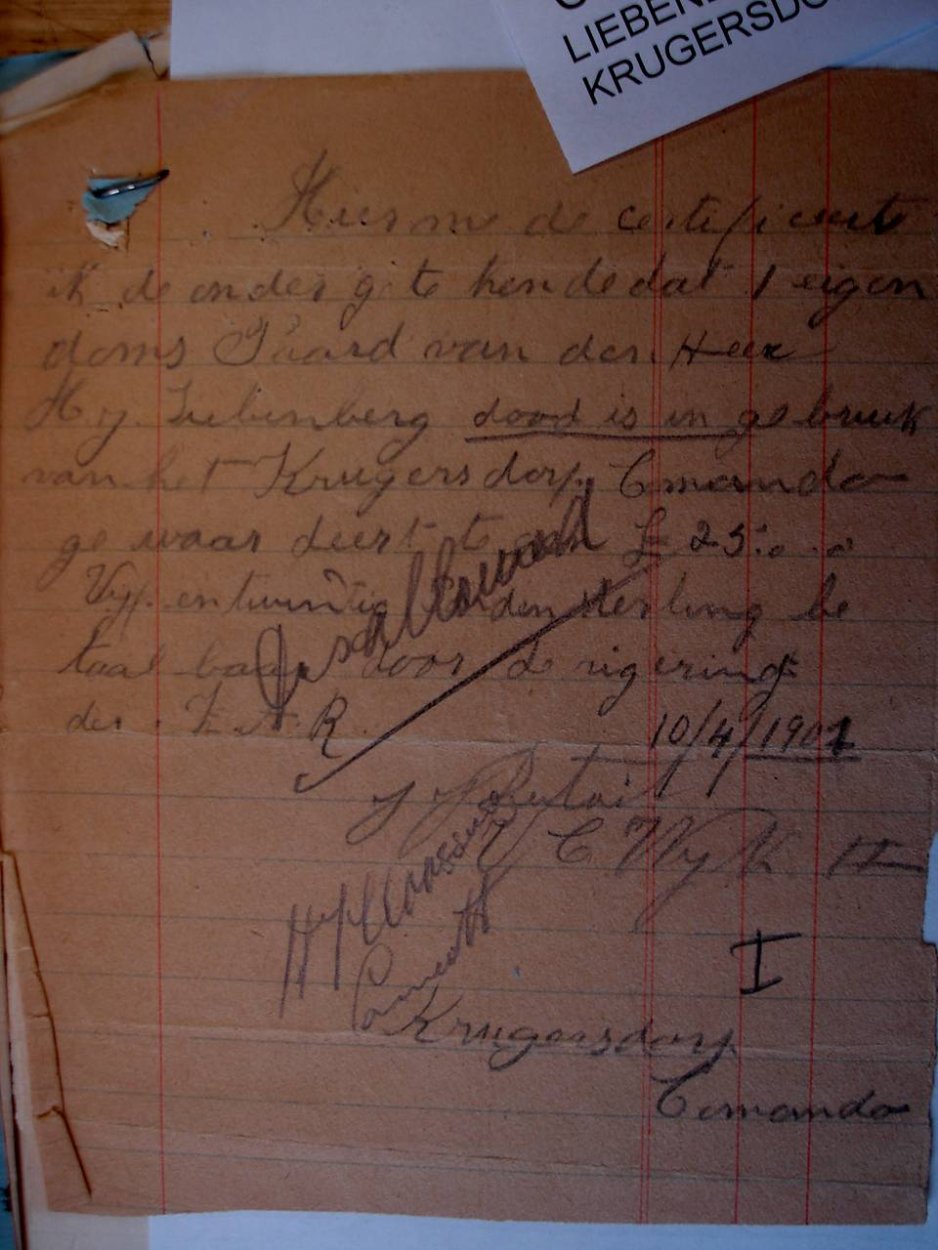 LIEBEN
KRUGERSDO
Hiermede certificeere
ik de onder gete kende dat 1 eigen
doms Paard van den Heer
H. J. Liebenberg dood is in gebruik
van het Krugersdorp Cmando
ge waar deert te £ 25:0.0
Vyf en twintig sterling be
taal baar door de rigering
der Z A R.
10/4/1901
V C Wyk
I
Krugersdorp
Comando